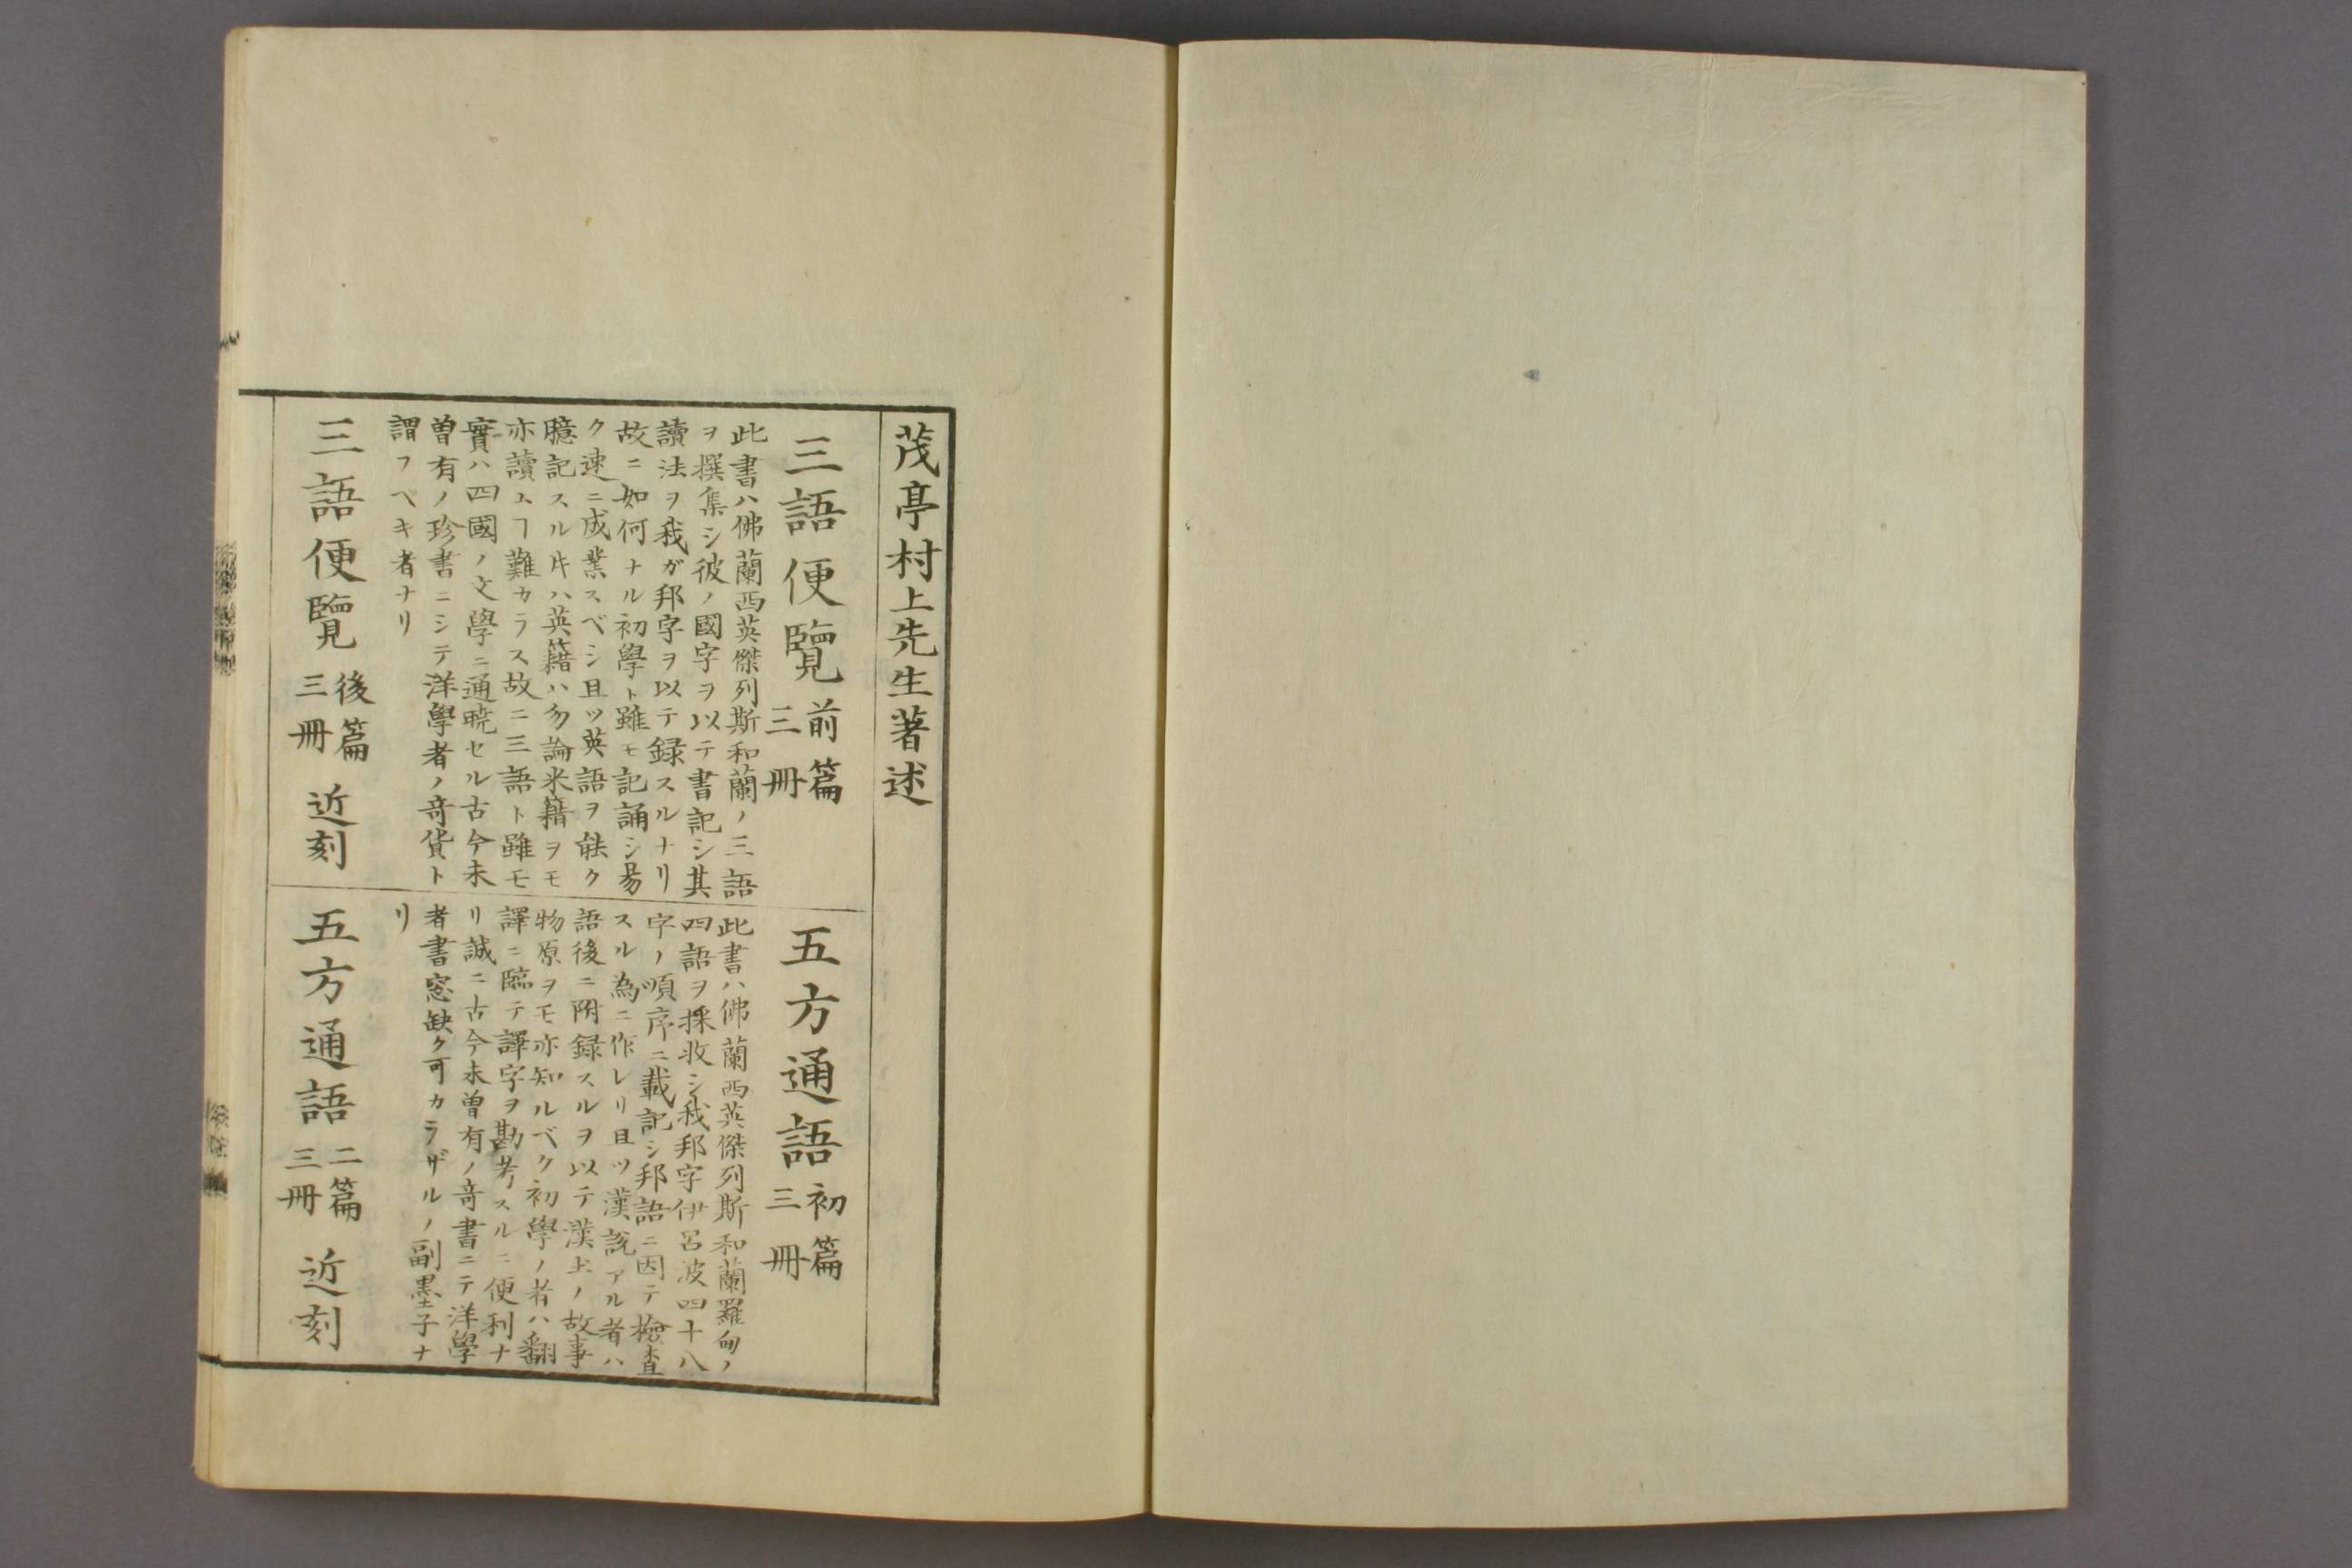 茂亭村上先生著述
三語便覽 前篇 三冊
此書ハ佛蘭西英傑列斯和蘭ノ三語
ヲ撰集シ彼ノ國字ヲ以テ書記シ其
讀法ヲ我ガ邦字ヲ以テ録スルナリ
故ニ如何ナル初學ト雖モ記誦シ昜
ク速ニ成業スベシ且ツ英語ヲ能ク
臆記スル𪜈ハ英籍ハ勿論米籍ヲモ
亦讀ムヿ難カラス故ニ三語ト雖モ
實ハ四國ノ文學ニ通暁セル古今未
曽有ノ珍書ニシテ洋學者ノ竒貨ト
謂フベキ者ナリ
三語便覽 後篇 三冊 近刻
五方通語 初篇 三冊
此書ハ佛蘭西英傑列斯和蘭羅甸ノ
四語ヲ採收シ我邦字伊呂波四十八
字ノ順序ニ載記シ邦語ニ因テ撿査
スル為ニ作レリ且ツ漢説アル者ハ
語後ニ附録スルヲ以テ漢土ノ故事
物原ヲモ亦知ルベク初學ノ者ハ翻
譯ニ臨テ譯字ヲ勘考スルニ便利ナ
リ誠ニ古今未曽有ノ竒書ニテ洋學
者書窓缺ク可カラザルノ副墨子ナ
リ
五方通語 二篇 三冊 近刻